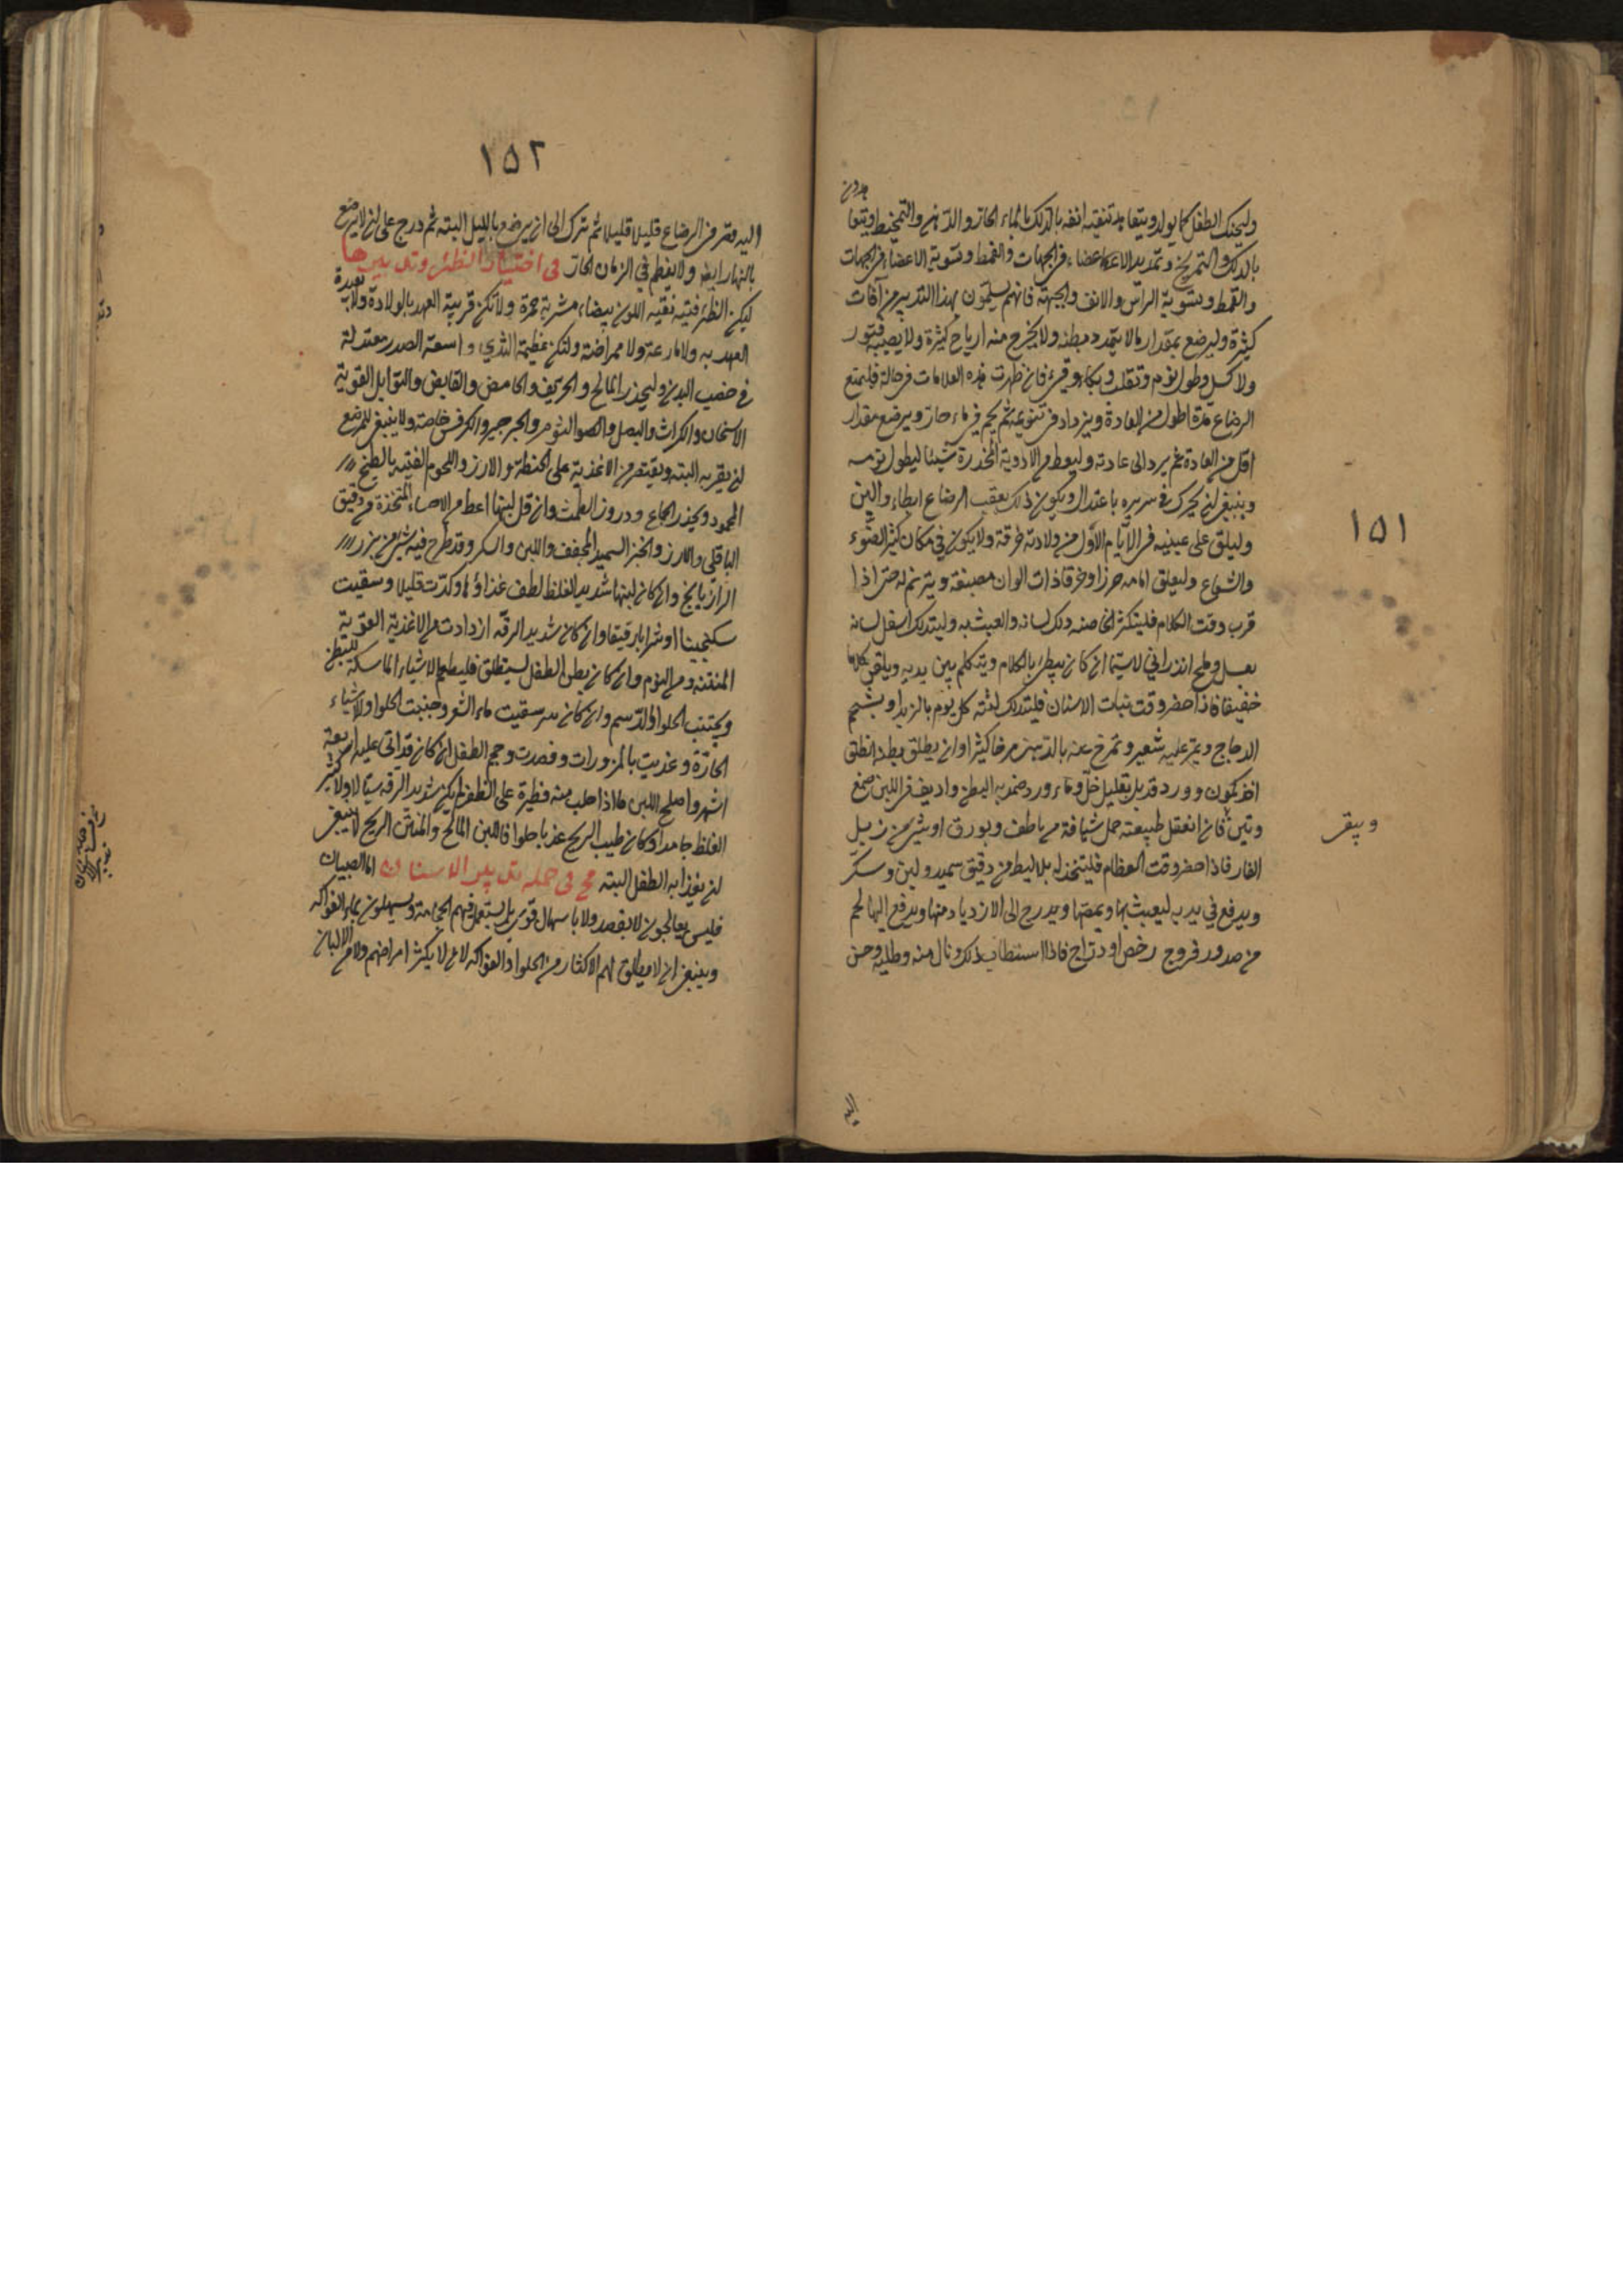 وليحنك الطفل كما يولد ويتعاهد تنقية انفه بالدلك بالماء الحار والدهن والتمخيط ويتعاهد
بالدلك والتمريخ وتمديد الاعضاء في الجهات والقمط وتسوية الاعضاء في الجهات
والقمط وتسوية الراس والانف والجبهة فانهم يسلمون بهذا التدبير من آفات
كثيرة وليرضع بمقدار ما لا يتمدد بطنه ولا يخرج منه ارياح كثيرة ولا يصيبه فتور
ولا كسل وطول نوم وتقلب وبكاء وقيء فان ظهرت هذه العلامات في حالة فليمنع
الرضاع مدة اطول من العادة ويزداد في تنويمه ثم يحم في ماء حار ويرضع مقدار
اقل من العادة ثم يرد الى عادته وليعط من الادوية المخدرة شيئا ليطول نومه
وينبغي ان يحرك في سريره باعتدال ويكون ذلك بعقب الرضاع ابطاء والين
وليلق على عينيه في الايام الاول من ولادته خرقة ولا يكون في مكان كثير الضوء
والشعاع وليعلق امامه خرزا وخرقا ذات الوان مصبغة ويترنم له حتى اذا
قرب وقت الكلام فليكثر الحاضنة دلك لسانه والعبث به وليتدلك اسفل لسانه
بعسل وملح اندراني لاسيما ان كان يبطئ بالكلام ويتكلم بين يديه ويلقن كلاما
خفيفا فاذا حضر وقت نبات الاسنان فليتدلك لثته كل يوم بالزبد او بشحم
الدجاج ويمر عليه شعير وتمرخ عنه بالدهن مرخا كثيرا وان يطلق بطنه انطلق
اخذ كمون وورد قد بل بقليل خل وماء ورد ضمد به البطن واديف في اللبن صمغ
وتين فان انعقل طبيعته حمل شيافة من ناطف وبورق او شيء من زبل
الفار فاذا حضر وقت الفطام فليتخذ له بلاليط من دقيق سميد ولبن وسكر
ويدفع في يديه ليعبث بها ويمصها ويدرج الى الازدياد منها ويدفع اليها لحم
من صدور فروج رخص او دراج فاذا استطاب ذلك ونال منه وطلبه وحن
١٥١
اليه
١٥٢
اليه قتر من الرضاع قليلا قليلا ثم ترك الى ان يرضع بالليل البته ثم درج على ان لا يرضع
بالنهار ايضا ولا يفطم في الزمان الحار في اختيار الظئر وتدبيرها
ليكن الظئر فتية نقية اللون بيضاء مشربة حمرة ولا تكن قريبة العهد بالولادة ولا بعيدة
العهد به ولا مارعة ولا ممراضة ولتكن عظيمة الثدي واسعة الصدر معتدلة
في خصب البدن وليحذر المالح والحريف والحامض والقابض والتوابل القوية
الاسخان والكراث والبصل والثوم والجرجير والكرفس خاصة ولا ينبغي للمرضع
ان يقربه البته ويقتصر من الاغذية على الحنطة والارز واللحوم الفتية بالطبخ
المحمود ويحذر الجماع ودرور الطمث وان قل لبنها اعط من الاحساء المتخذة من دقيق
الباقلي والارز والخبز السميد المجفف واللبن والسكر وقد طرح فيه شيء من بزر
الرازيانج وان كان لبنها شديد الغلظ لطف غذاؤها وكدت قليلا وسقيت
سكنجبينا او شرابا رقيقا وان كان شديد الرقة ازدادت من الاغذية القوية
المتنة ومن النوم وان كان بطن الطفل يستطلق فليطعم الاشياء الماسكة للبطن
ويجتنب الحلوا والدسم وان كان سقيت ماء الشعير وجنبت الحلوا والاشياء
الحارة وغذيت بالمزورات وفصدت وحجم الطفل ان كان قد اتى عليه اربعة
اشهر واصلح اللبن ما اذا حلب منه قطرة على الظفر لم يكن شديد الرقة سيالا ولا كثير
الغلظ جامدا وكان طيب الريح عذبا حلوا فاللبن المالح والمنتن الريح لا ينبغي
ان يغذا به الطفل البته في جمله تدبير الاسنان اما الصبيان
فليس يعالجون لا بفصد ولا باسهال قوي بل يستعمل فيهم الحجامة ويسهلون بماء الفواكه
وينبغي ان لا يطلق لهم الاكثار من الحلوا والفواكه لان لا يكثر امراضهم ولا من الالبان